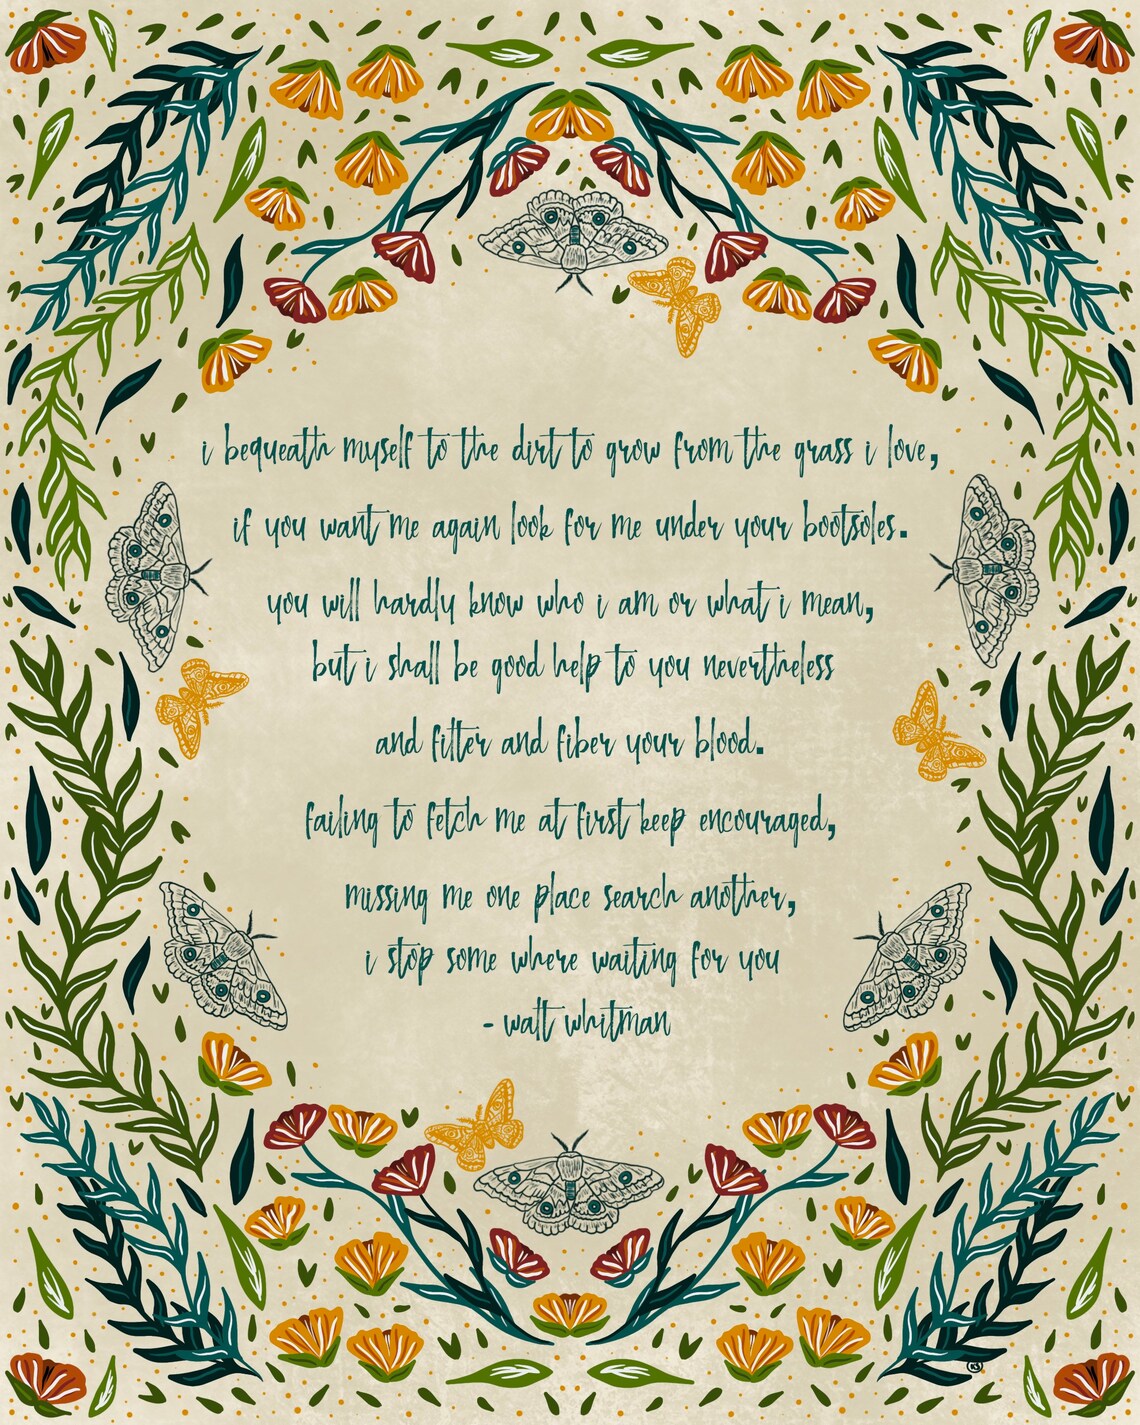 i bequeath myself to the dirt to grow from the grass i love,
if you want me again look for me under your bootsoles.
you will hardly know who i am or what i mean,
but i shall be good help to you nevertheless
and filter and fiber your blood.
failing to fetch me at first keep encouraged,
missing me one place search another,
i stop some where waiting for you
- walt whitman